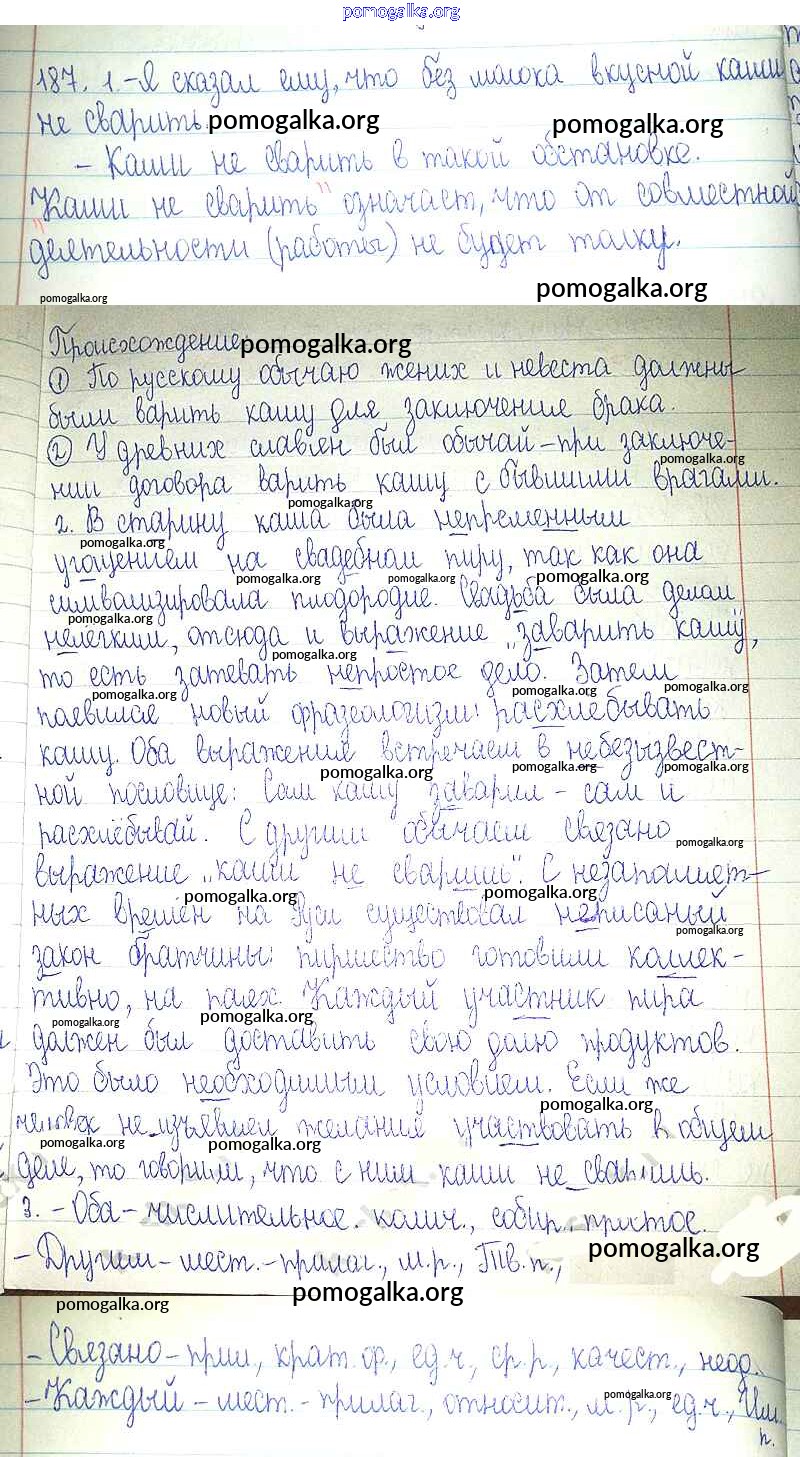 pomogalka.org
187. 1. - Я сказал ему, что без молока вкусной каши
не сварить.
pomogalka.org pomogalka.org
- Каши не сварить в такой обстановке.
"Каши не сварить" означает, что от совместной
деятельности (работы) не будет толку.
pomogalka.org pomogalka.org
Происхождение: pomogalka.org
① По русскому обычаю жених и невеста должны
были варить кашу для заключения брака.
② У древних славян был обычай - при заключе-
pomogalka.org
нии договора варить кашу с бывшими врагами.
pomogalka.org
2. В старину каша была непременным
pomogalka.org
угощением на свадебном пиру, так как она
pomogalka.org pomogalka.org pomogalka.org
символизировала плодородие. Свадьба была делом
нелёгким, отсюда и выражение „заварить кашу",
pomogalka.org
то есть затевать непростое дело. Затем
pomogalka.org pomogalka.org pomogalka.org
появился новый фразеологизм: расхлебывать
кашу. Оба выражения встречаем в небезызвест-
pomogalka.org pomogalka.org pomogalka.org
ной пословице: Сам кашу заварил - сам и
расхлёбывай. С другим обычаем связано
pomogalka.org
выражение „каши не сваришь". С незапамят-
pomogalka.org pomogalka.org
ных времён на Руси существовал неписаный
pomogalka.org
закон братчины: пиршество готовили коллек-
тивно, на паях. Каждый участник пира
pomogalka.org pomogalka.org
должен был доставить свою долю продуктов.
Это было необходимым условием. Если же
pomogalka.org
человек не изъявлял желания участвовать в общем
pomogalka.org pomogalka.org
деле, то говорили, что с ним каши не сваришь.
3. - Оба - числительное. колич., собир. простое.
- Другим - мест. - прилаг., м.р., Тв. п.,
pomogalka.org
pomogalka.org pomogalka.org
- Связано - прич., крат. ф., ед.ч., ср.р., качест., неод.
pomogalka.org
- Каждый - мест. - прилаг., относит., м.р., ед.ч., Им.
п.